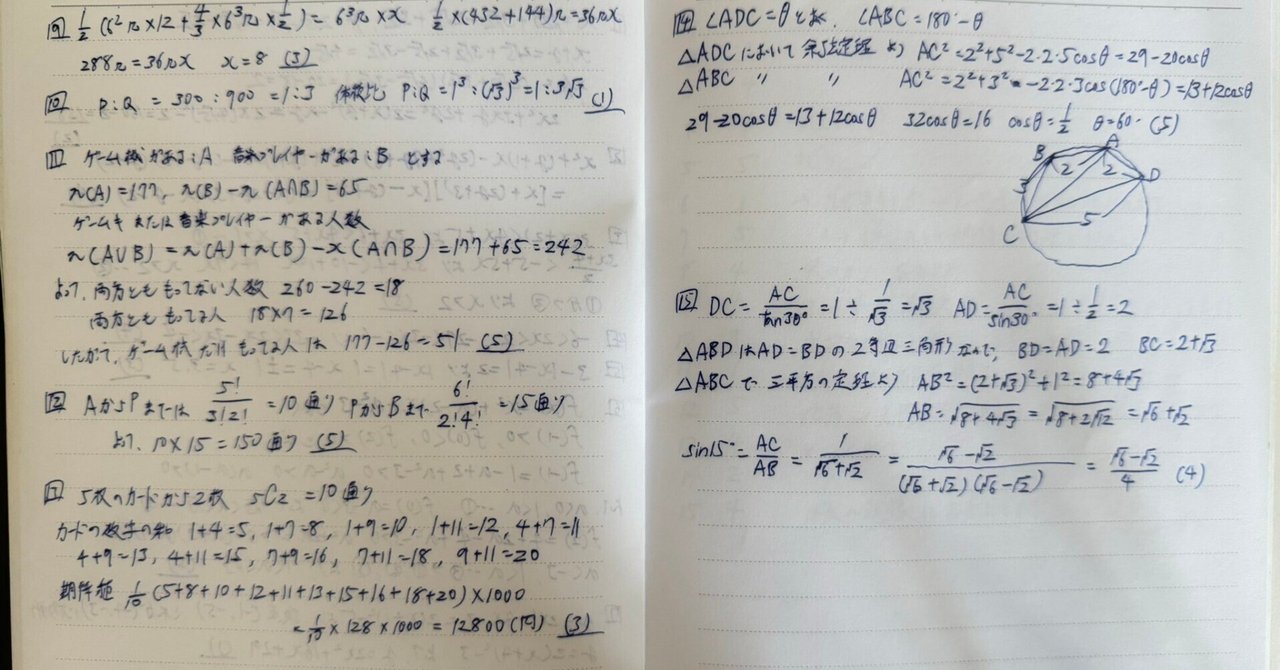 9 1/2(6²π×12+4/3×6³π×1/2)=6³π×x 1/2×(432+144)π=36πx
288π=36πx x=8 (3)
10 P:Q=300:900=1:3 体積比 P:Q=1³:(√3)³=1:3√3 (1)
11 ゲーム機がある:A 音楽プレイヤーがある:B とする
n(A)=177, n(B)-n(A∩B)=65
ゲームキまたは音楽プレイヤーがある人数
n(A∪B)=n(A)+n(B)-n(A∩B)=177+65=242
よって、両方とももってない人数 260-242=18
両方とももってる人 18×7=126
したがって、ゲーム機だけもってる人は 177-126=51 (5)
12 AからPまでは 5!/3!2! =10通り PからBまで 6!/2!4! =15通り
よって、10×15=150通り (5)
13 5枚のカードから2枚 5C2=10通り
カードの数字の和 1+4=5, 1+7=8, 1+9=10, 1+11=12, 4+7=11
4+9=13, 4+11=15, 7+9=16, 7+11=18, 9+11=20
期待値 1/10(5+8+10+12+11+13+15+16+18+20)×1000
=1/10×128×1000=12800(円) (3)
14 ∠ADC=θとおく ∠ABC=180°-θ
△ADCにおいて余弦定理より AC²=2²+5²-2・2・5cosθ=29-20cosθ
△ABC 〃 〃 AC²=2²+3²-2・2・3cos(180°-θ)=13+12cosθ
29-20cosθ=13+12cosθ 32cosθ=16 cosθ=1/2 θ=60° (5)
A
B
2
2
D
3
5
C
15 DC=AC/tan30°=1÷1/√3=√3 AD=AC/sin30°=1÷1/2=2
△ABDはAD=BDの2等辺三角形なので、BD=AD=2 BC=2+√3
△ABCで三平方の定理より AB²=(2+√3)²+1²=8+4√3
AB=√(8+4√3)=√(8+2√12)=√6+√2
sin15°=AC/AB=1/(√6+√2)=(√6-√2)/((√6+√2)(√6-√2))=(√6-√2)/4 (4)